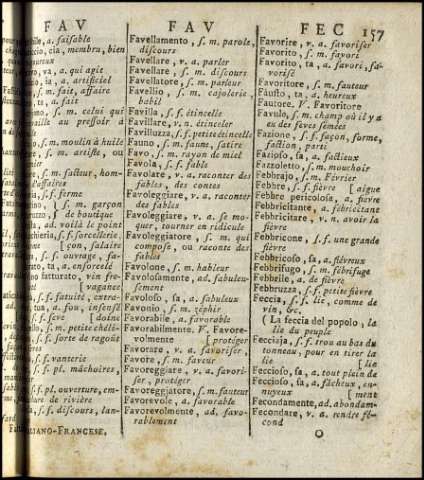 FAV
FAV
FEC
157
faisable
cia, membru, bien
vigoureux
va, a. qui agit
a. artificiel
s. m. fait, affaire
ta, a. fait
s. m. celui qui
travaille au pressoir à
s. m. moulin à huile
s. m. artiste, ou
s. m. facteur, hom-
d'affaires
s. f. ferme
s. m. garçon
de boutique
ad. voilà le point
s. f. sorcellerie,
çon, salaire
s. f. ouvrage, fa-
ta, a. enforcelé
fatturato, vin fre-
vagance
s. f. fatuité, extra-
tua, a. fou, insensé
s. f. feve [doine
s. m. petite chéli-
s. f. sorte de ragoût
s. f. vanterie
s. f. pl. mâchoires,
s. f. pl. ouverture, em-
de rivière
s. f. discours, lan-
ITALIANO-FRANCESE,
Favellamento, s. m. parole,
discours
Favellare, v. a. parler
Favellare, s. m. discours
Favellatore, s. m. parleur
Favellio, s. m. cajolerie,
babil
Favilla, s. f. étincelle
Favillare, v. n. étinceler
Favilluzza, s. f. petite étincelle
Fauno, s. m. faune, satire
Favo, s. m. rayon de miel
Favola, s. f. fable
Favolare, v. a. raconter des
fables, des contes
Favoleggiare, v. a. raconter
des fables
Favoleggiare, v. a. se mo-
quer, tourner en ridicule
Favoleggiatore, s. m. qui
compose, ou raconte des
fables
Favolone, s. m. hableur
Favolosamente, ad. fabuleu-
sement
Favoloso, sa, a. fabuleux
Favonio, s. m. zéphir
Favorabile, a. favorable
Favorabilmente. V. Favore-
volmente [protéger
Favorare, v. a. favoriser,
Favore, s. m. faveur
Favoreggiare, v. a. favori-
ser, protéger
Favoreggiatore, s. m. fauteur
Favorevole, a. favorable
Favorevolmente, ad. favo-
rablement
Favorire, v. a. favoriser
Favorito, s. m. favori
Favorito, ta, a. favori, fa-
vorisé
Favoritore, s. m. fauteur
Fausto, ta, a. heureux
Fautore. V. Favoritore
Favulo, s. m. champ où il y a
eu des fèves semées
Fazione, s. f. façon, forme,
faction, parti
Fazioso, sa, a. factieux
Fazzoletto, s. m. mouchoir
Febbrajo, s. m. Février
Febbre, s. f. fièvre [aigue
Febbre pericolosa, a. fièvre
Febbricitante, a. fébricitant
Febbricitare, v. n. avoir la
fièvre
Febbricone, s. f. une grande
fièvre
Febbricoso, sa, a. fiévreux
Febbrifugo, s. m. fébrifuge
Febbrile, a. de fièvre
Febbruzza, s. f. petite fièvre
Feccia, s. f. lie, comme de
vin, &c.
( La feccia del popolo, la
lie du peuple
Fecciaja, s. f. trou au bas du
tonneau, pour en tirer la
lie [lie
Feccioso, sa, a. tout plein de
Feccioso, sa, a. fâcheux, en-
nuyeux [ment
Fecondamente, ad. abondam-
Fecondare, v. a. rendre fé-
cond
O